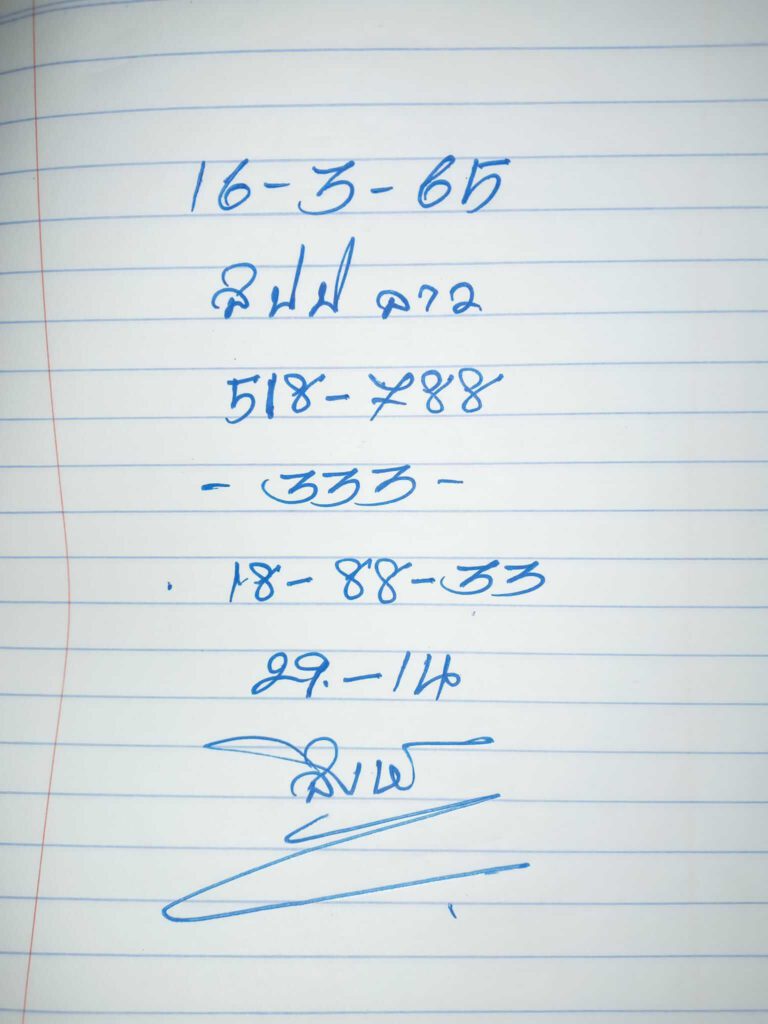 16-3-65
สิปป ลาว
518-788
- 333 -
18-88-33
29.-14